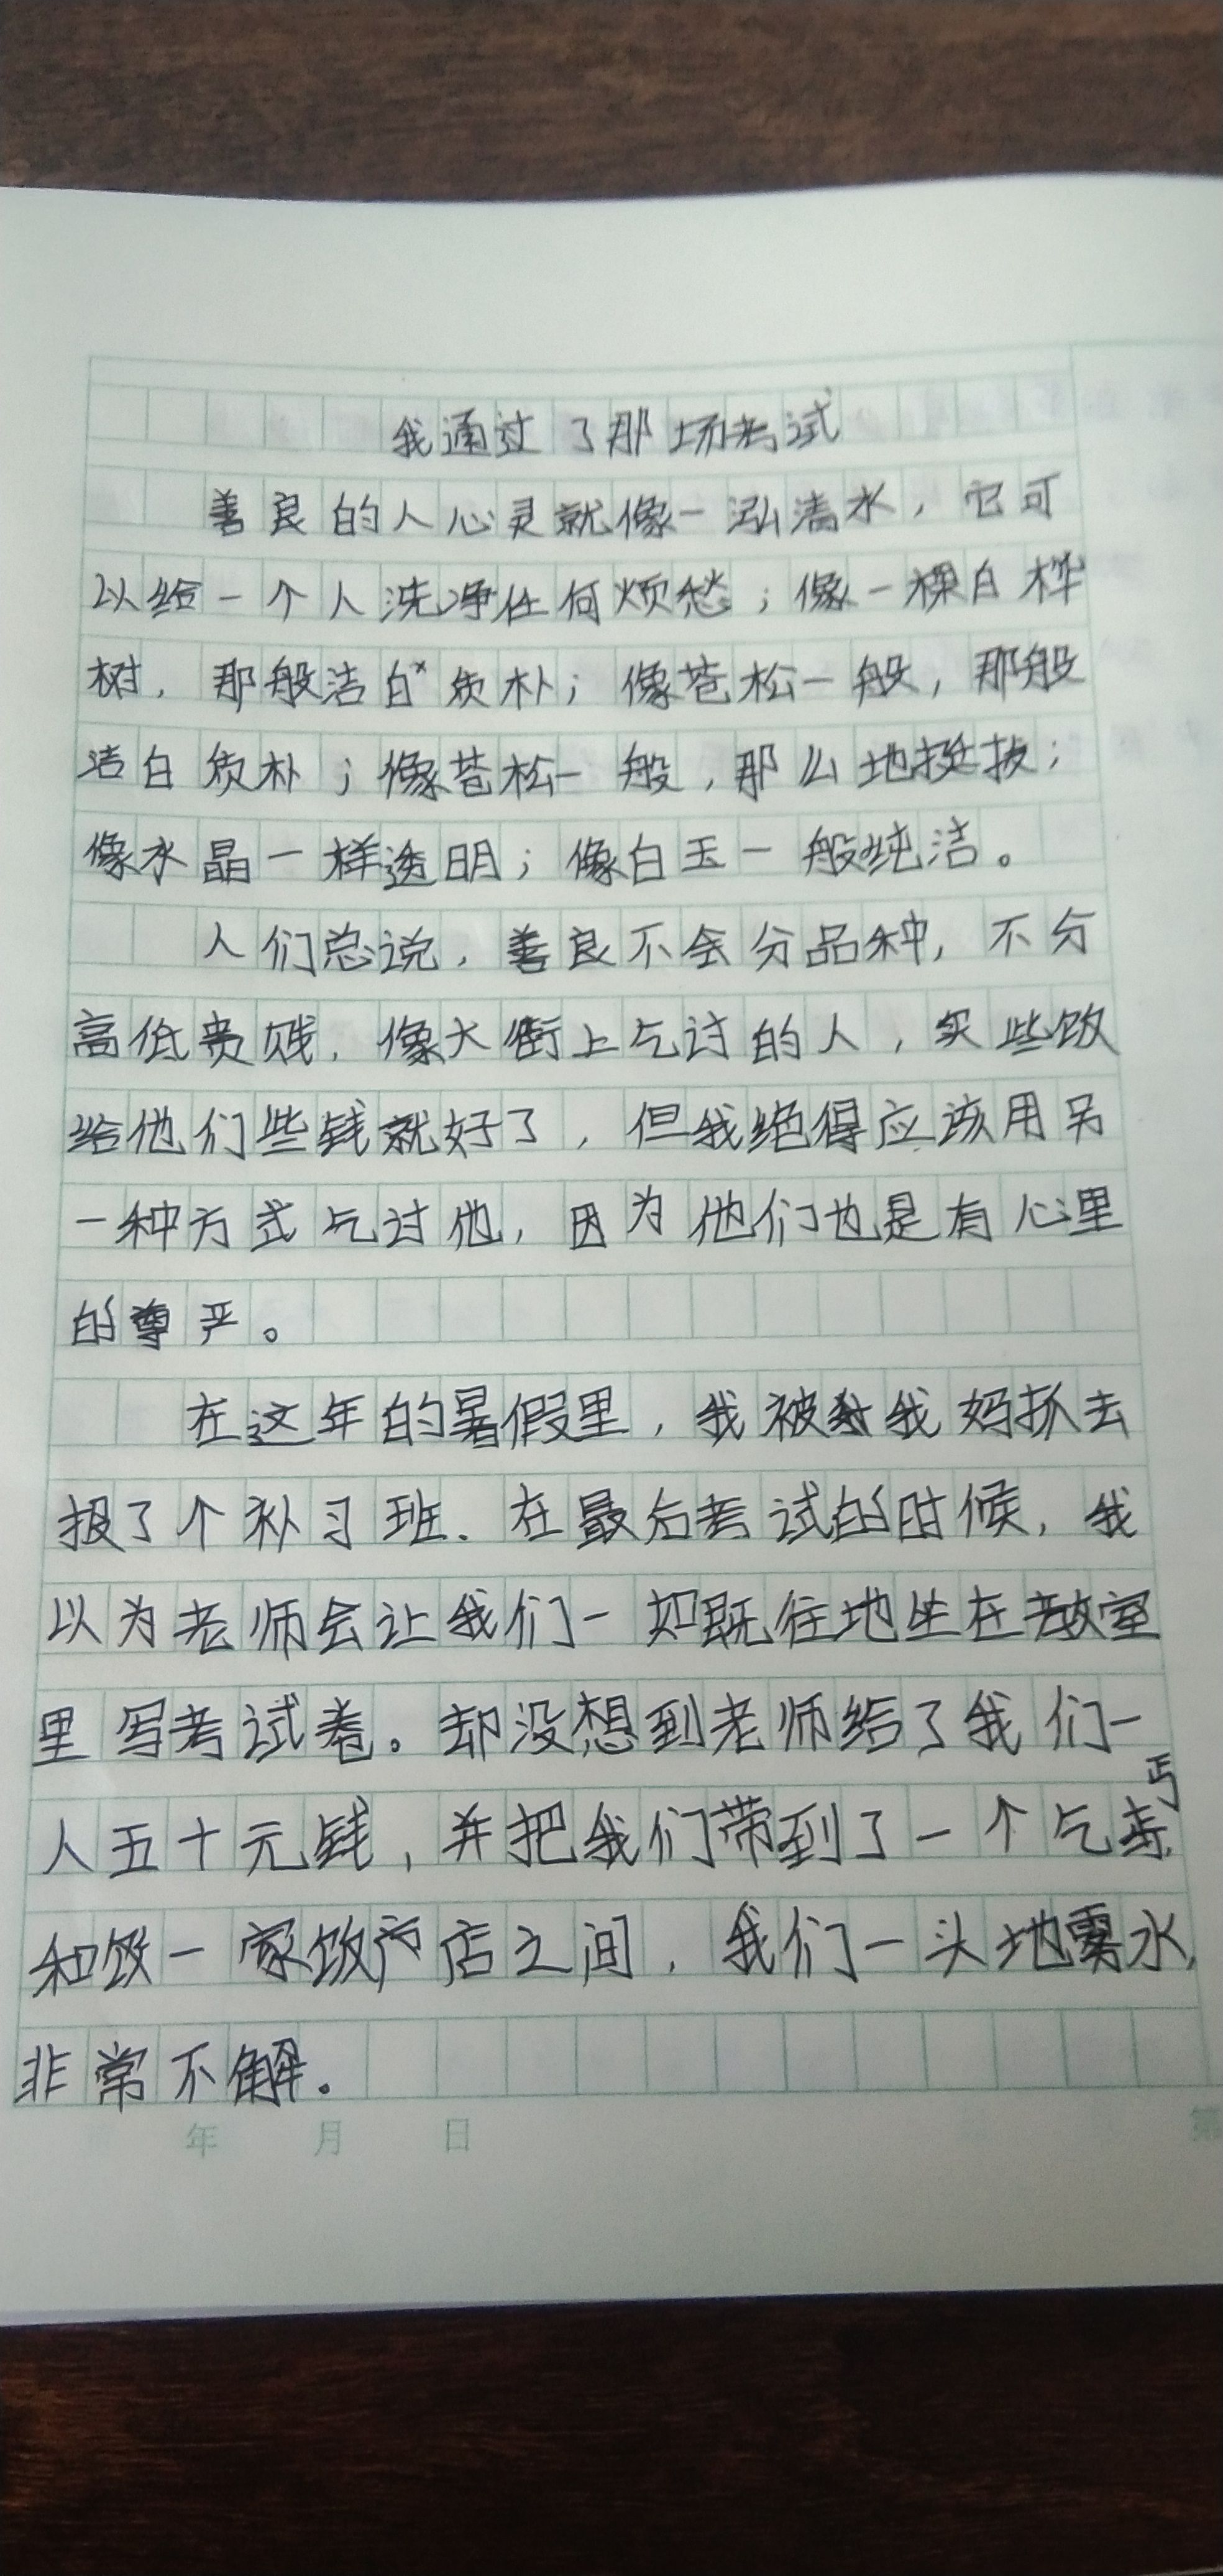 我通过了那场考试
善良的人心灵就像一泓清水，它可
以给一个人洗净任何烦愁；像一棵白桦
树，那般洁白质朴；像苍松一般，那般
洁白质朴；像苍松一般，那么地挺拔；
像水晶一样透明；像白玉一般纯洁。
人们总说，善良不会分品种，不分
高低贵贱，像大街上乞讨的人，买些饭
给他们些钱就好了，但我绝得应该用另
一种方式乞讨他，因为他们也是有心里
的尊严。
在这年的暑假里，我被我妈抓去
报了个补习班．在最后考试的时候，我
以为老师会让我们一如既往地坐在教室
里写考试卷。却没想到老师给了我们一
人五十元钱，并把我们带到了一个乞丐
和饭一家饭店之间，我们一头地雾水，
非常不解．
年 月 日
第